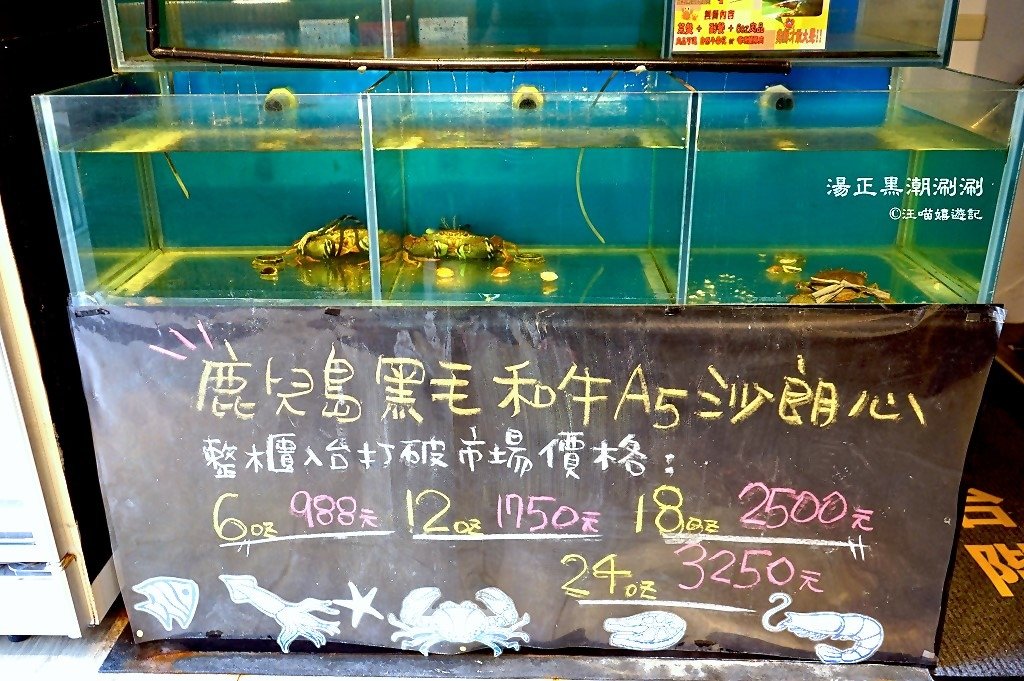 湯正黑潮涮涮
©汪喵嬉遊記
鹿兒島黑毛和牛A5沙朗心
整櫃入台打破市場價格:
6oz 988元 12oz 1750元 18oz 2500元
24oz 3250元
台